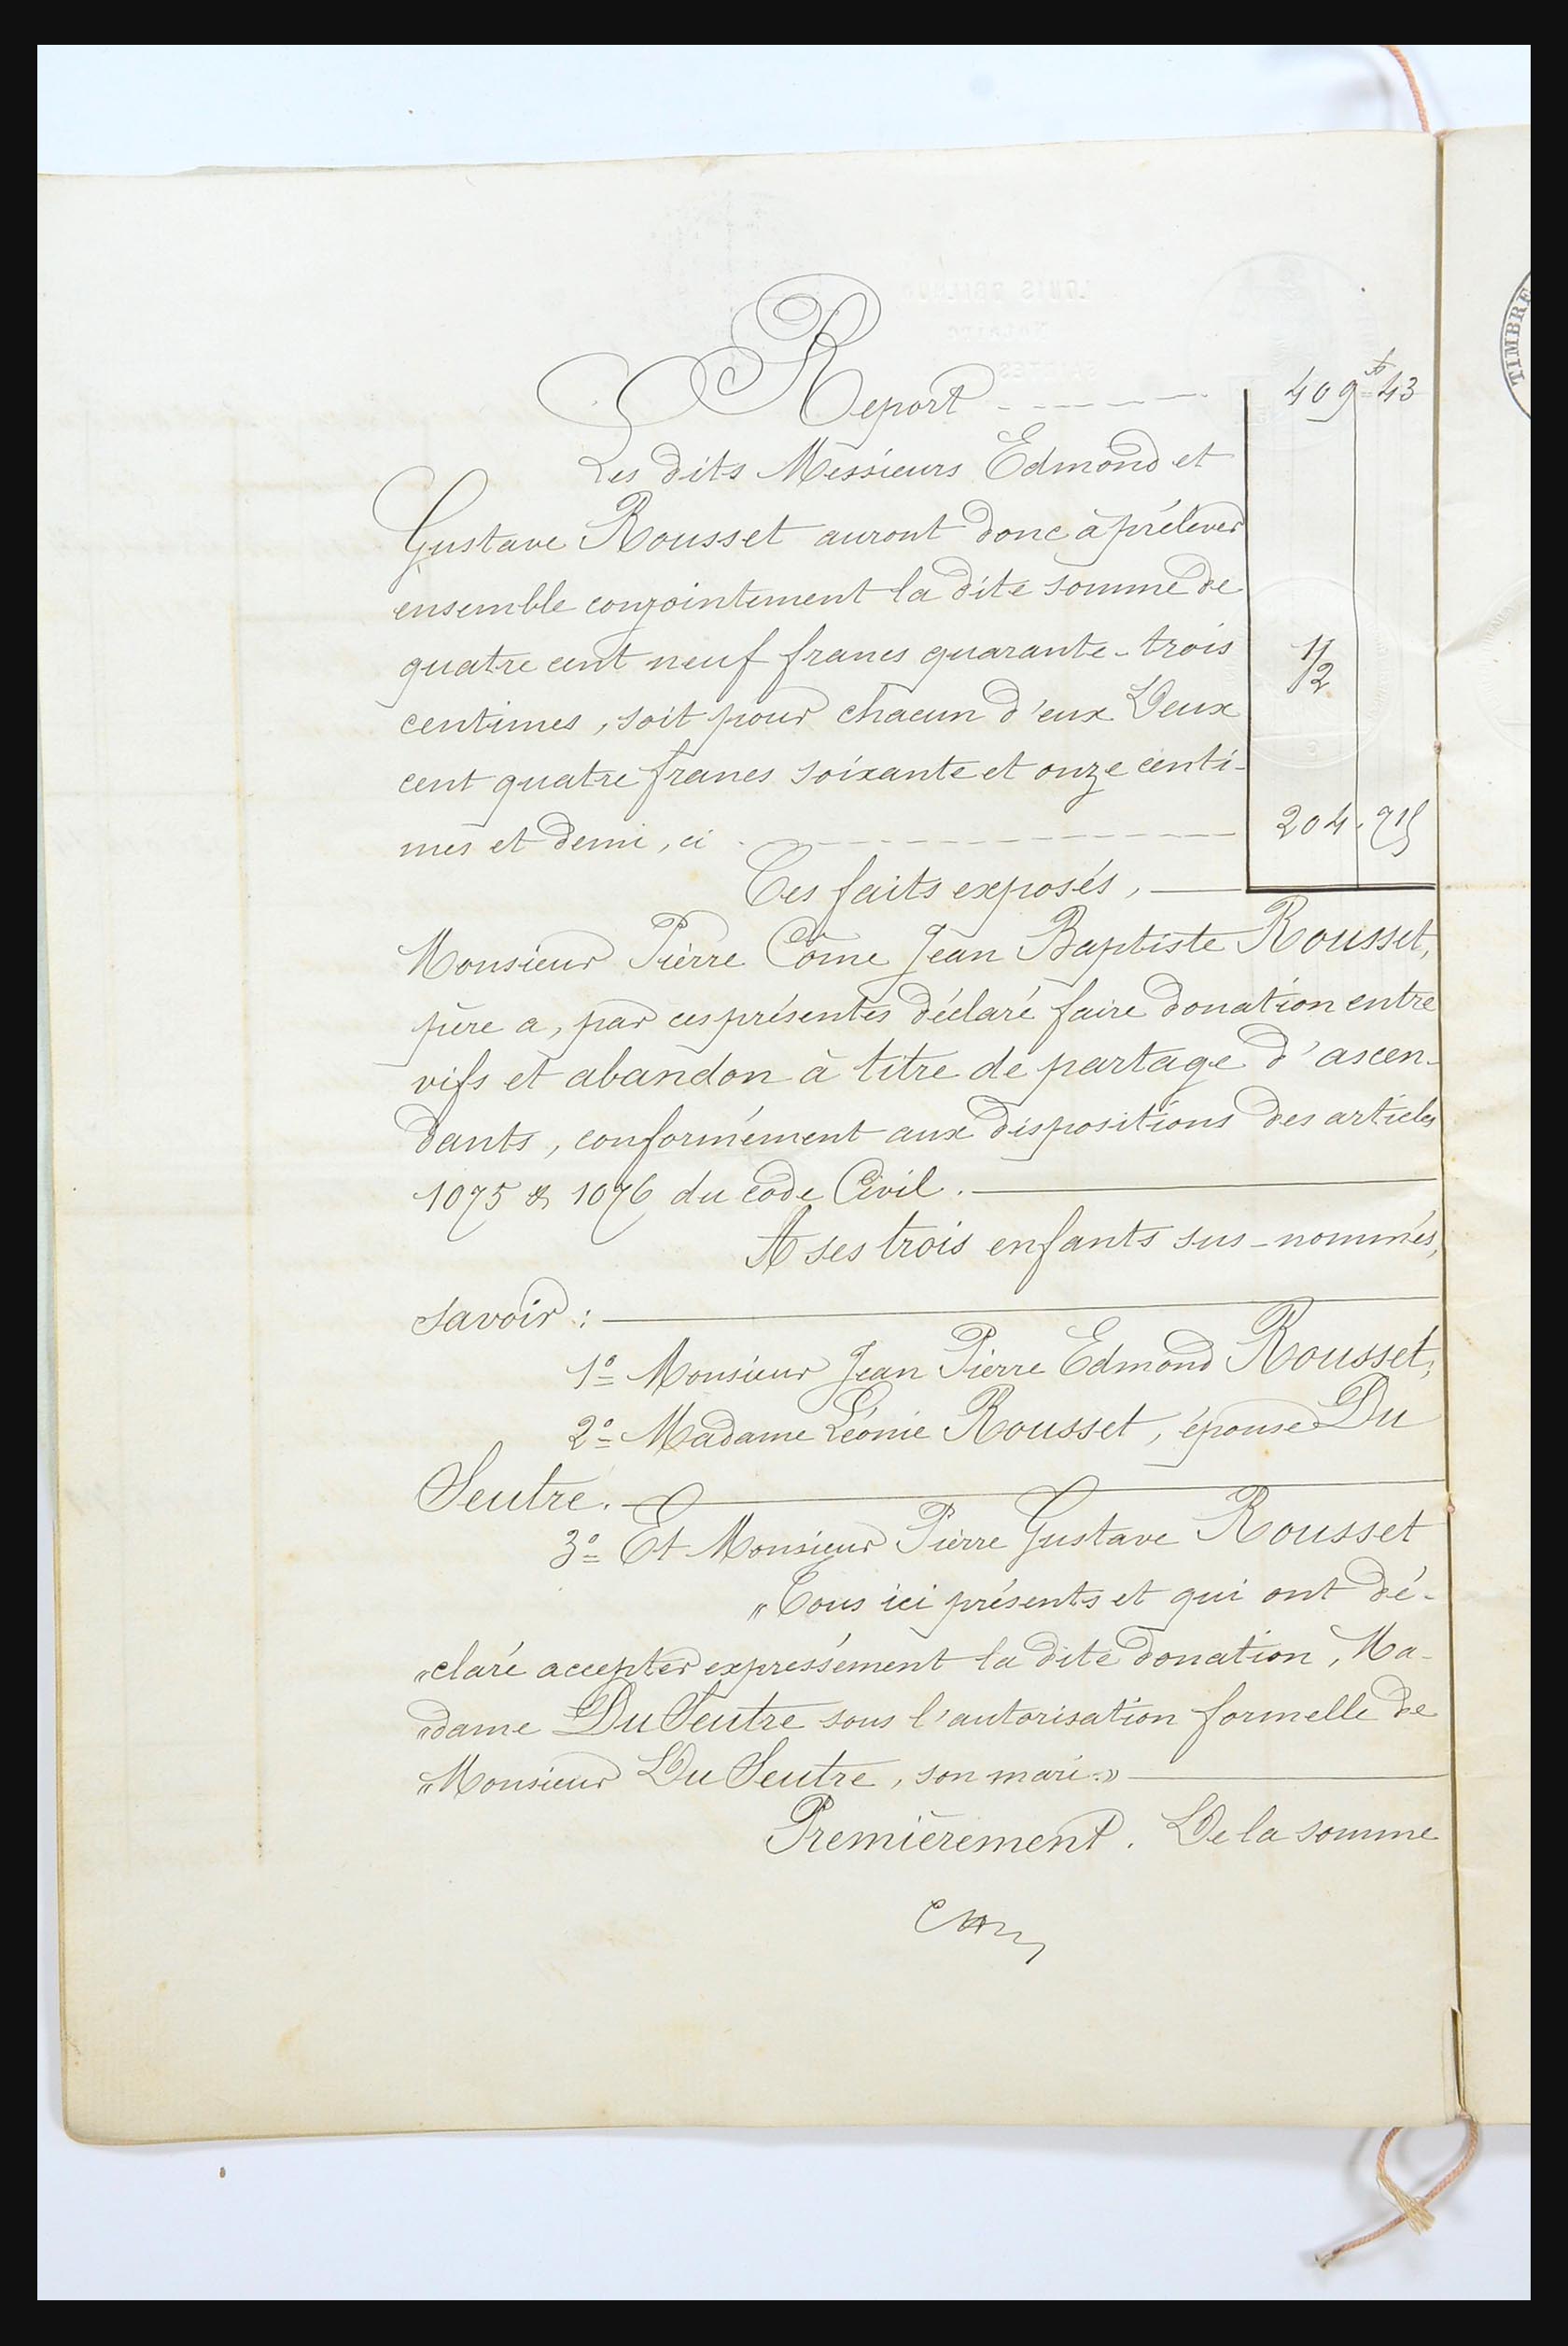 Report 409 43
Les dits Messieurs Edmond et
Gustave Rousset auront donc à prélever
ensemble conjointement la dite somme de
quatre cent neuf francs quarante-trois
centimes, soit pour chacun d'eux Deux 1/2
cent quatre francs soixante et onze centi-
mes et demi, ci 204. 715
Ces faits exposés,
Monsieur Pierre Côme Jean Baptiste Rousset,
père a, par ces présentes déclaré faire donation entre
vifs et abandon à titre de partage d'ascen-
dants, conformément aux dispositions des articles
1075 & 1076 du code Civil.
A ses trois enfants sus-nommés,
savoir :
1º Monsieur Jean Pierre Edmond Rousset,
2º Madame Léonie Rousset, épouse Du
Seutre.
3º Et Monsieur Pierre Gustave Rousset
"Tous ici présents et qui ont dé-
"claré accepter expressément la dite donation, Ma-
"dame Du Seutre sous l'autorisation formelle de
"Monsieur Du Seutre, son mari."
Premièrement. De la somme
TIMBRE